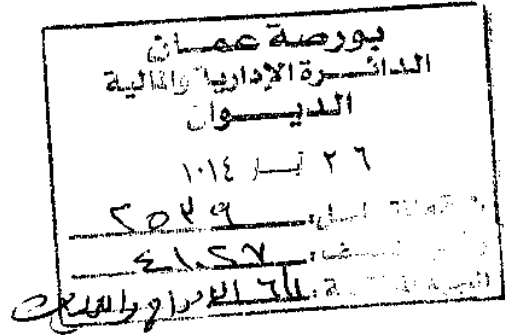 بورصة عمان
الدائرة الإدارية والمالية
الديوان
٢٦ أيار ٢٠١٤
الرقم المتسلسل: ٢٥٣٩
رقم الملف: ٤١٠٢٧
الجهة المختصة: الإدراج والعمليات